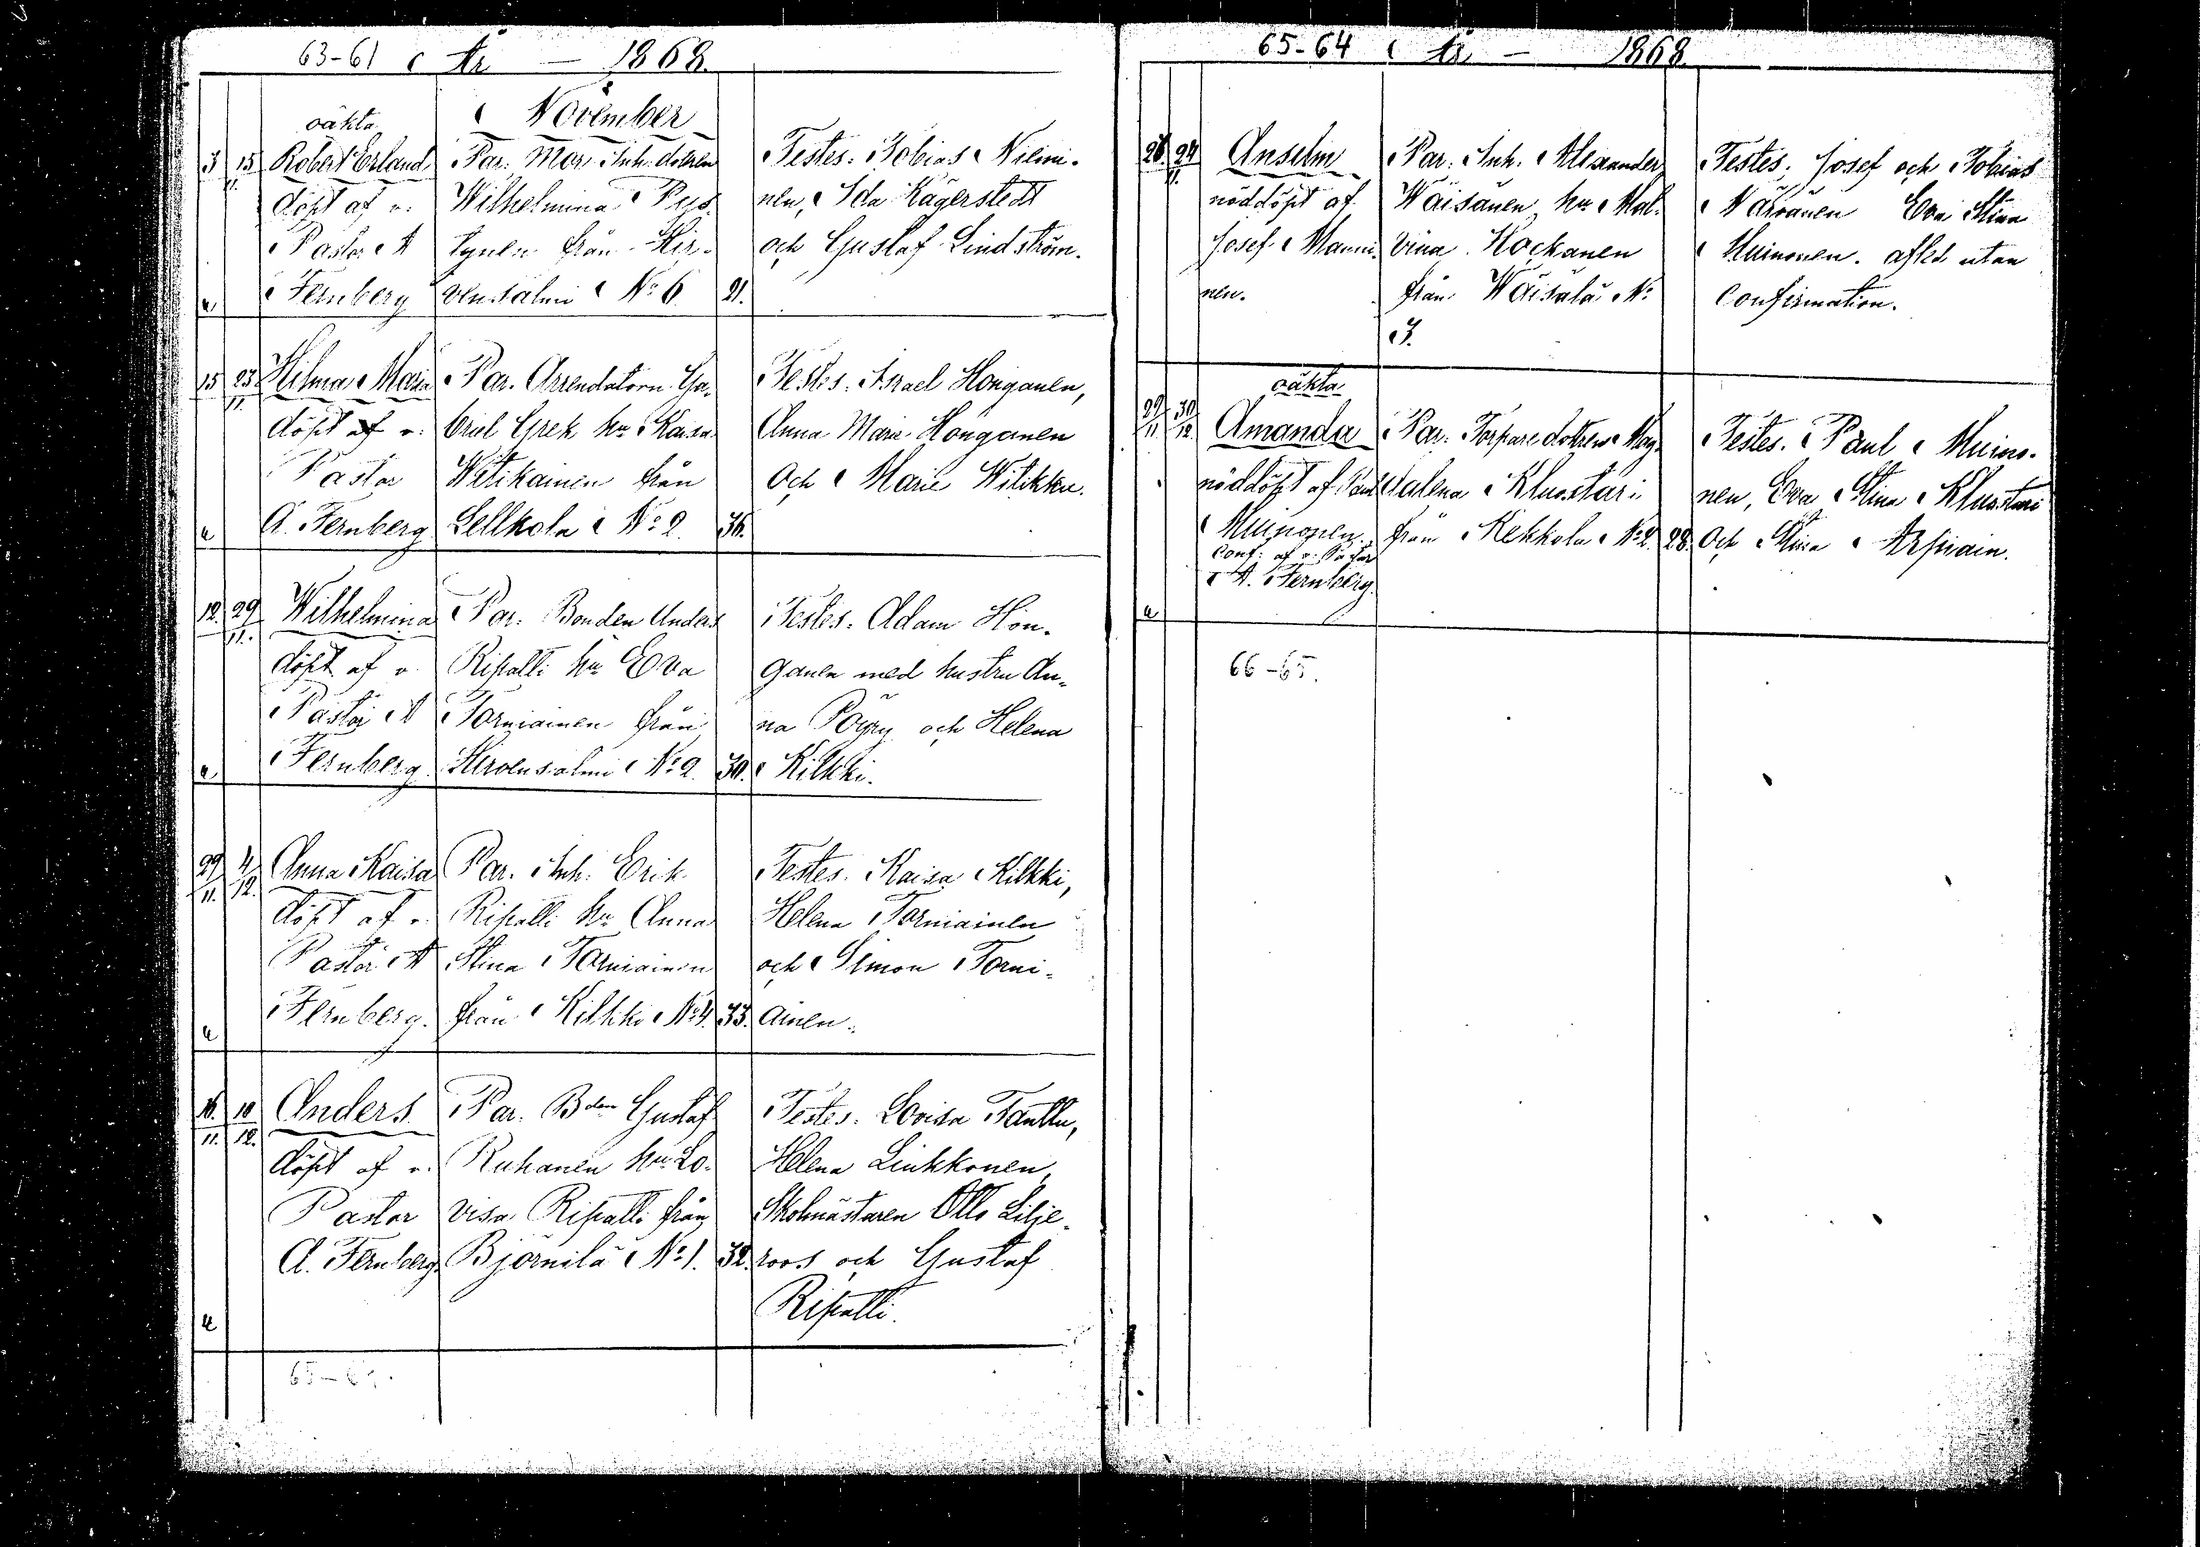 63-61 År — 1868.
November
oäkta
3 15 Robert Erland Par. Mor. Inh. dottren Testes. Tobias Niemi-
11. döpt af v. Wilhelmina Pys- nen, Ida Kägerstedt
Pastor A synen från Hir- och Gustaf Lindström.
Fernberg vensalmi No 6. 21.
15 23 Hilma Maria Par. Arrendatorn Ga- Testes. Israel Honganen,
11. döpt af v. briel Grek hu Kaisa Anna Marie Honganen
Pastor Wetikainen från Och Marie Wilikka.
A. Fernberg Sellkola No 2. 36.
12. 29 Wilhelmina Par. Bonden Anders Testes. Adam Hon-
11. döpt af v. Ripatti hu Eva ganen med hustru An-
Pastor A Torniainen från na Pöyry och Helena
Fernberg Hirvensalmi No 2. 30. Kilkki.
29 4 Anna Kaisa Par. Inh. Erik Testes. Kaisa Kilkki,
11. 12. döpt af v. Ripatti hu Anna Helena Torniainen
Pastor A Stina Torniainen och Simon Torni-
Fernberg. från Kilkki No 4. 33. ainen.
16. 10 Anders Par. Bden Gustaf Testes. Lovisa Tanttu,
11. 12. döpt af v. Ruhanen hu Lo- Helena Linkkonen,
Pastor visa Ripatti från Skolmästaren Otto Lilje-
A. Fernberg Björnilä No 1. 32. roos och Gustaf
Ripatti.
65-64 År — 1868
28. 29 Anselm Par. Inh. Alexander Testes. Josef och Tobias
11. nöddöpt af Wäisänen, hu Mal- Närvänen Eva Stina
Josef Manni- vina Hockanen Muinonen. afled utan
nen. från Wäisälä No Confirmation.
3.
oäkta
29 30 Amanda Par. Torparedottren Mag- Testes. Paul Muino-
11 12. nöddöpt af Paul dalena Kluustari nen, Eva Stina Kluustari
Muinonen. från Kekkola No 2. 28. Och Stina Arpiain.
Conf: af v. Pastor
A. Fernberg.
66-65.